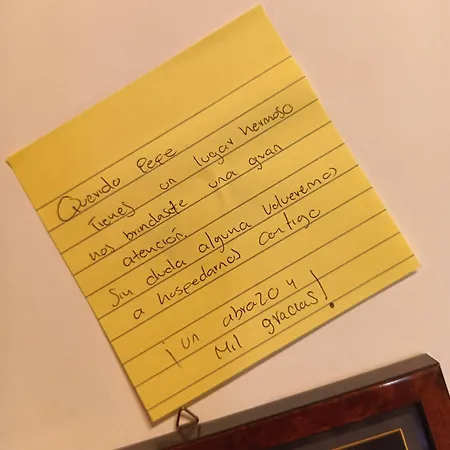 Querido Pepe
Tienes un lugar hermoso
nos brindaste una gran
atención.
Sin duda alguna volveremos
a hospedarnos contigo
¡un abrazo y
Mil gracias!